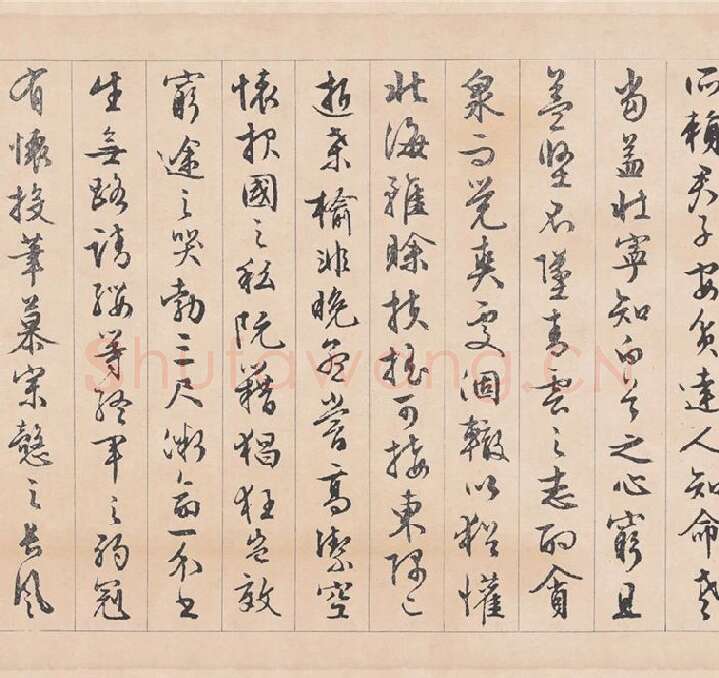 所賴君子安貧達人知命老
當益壯寧知白首之心窮且
益堅不墜青雲之志酌貪
泉而覺爽處涸轍以猶懽
北海雖賒扶搖可接東隅已
逝桑榆非晚孟嘗高潔空
懷報國之私阮籍猖狂豈效
窮途之哭勃三尺微命一介書
生無路請纓等終軍之弱冠
有懷投筆慕宗愨之長風
Shufawang.CN